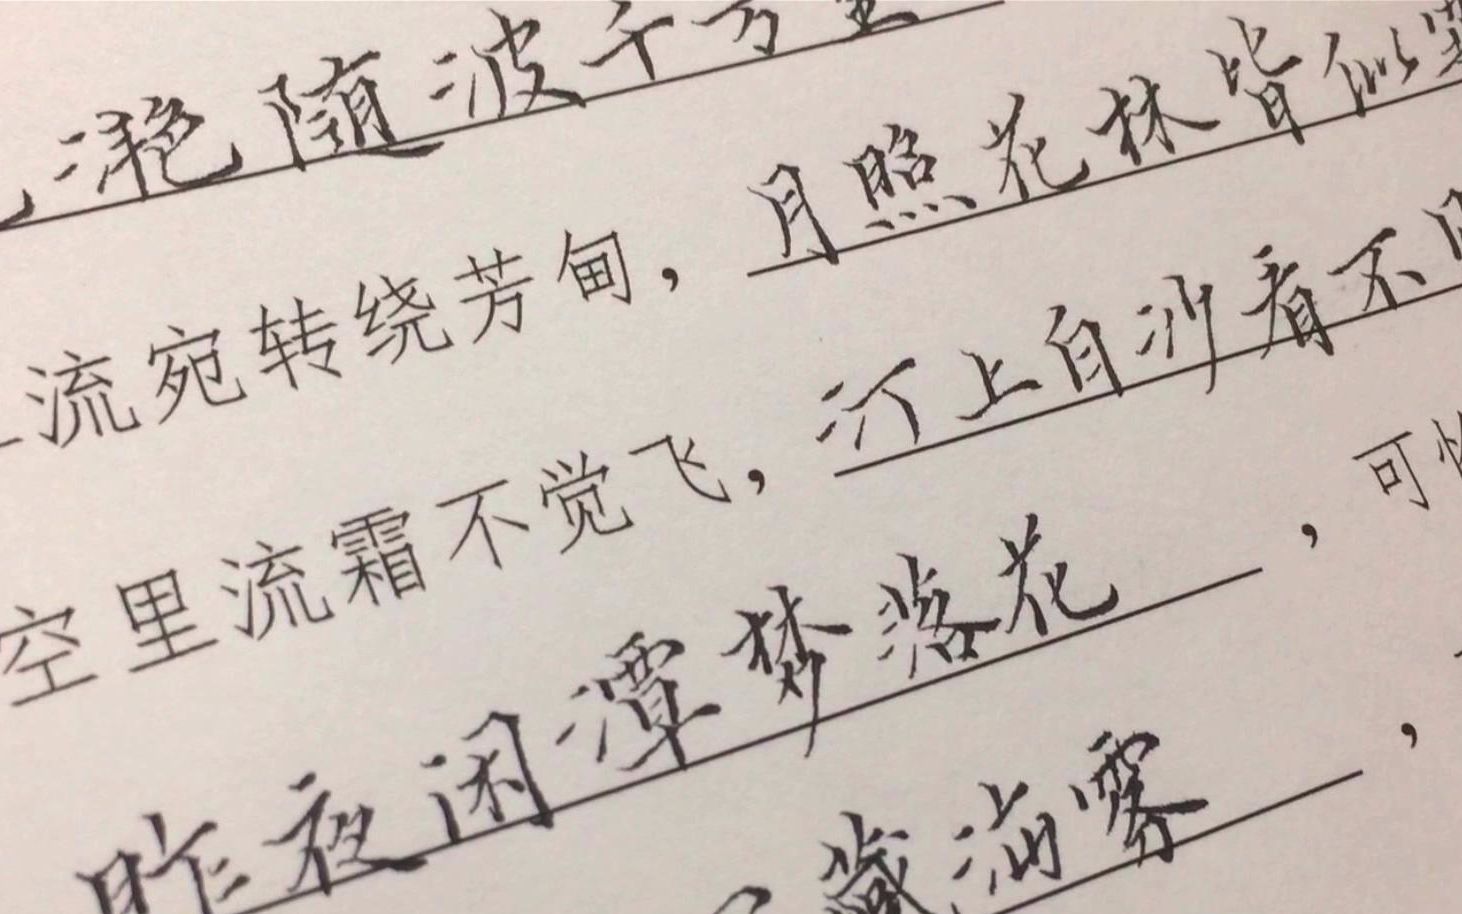 滟随波千万里
流宛转绕芳甸，月照花林皆似霰
空里流霜不觉飞，汀上白沙看不
昨夜闲潭梦落花，可怜
藏海雾，